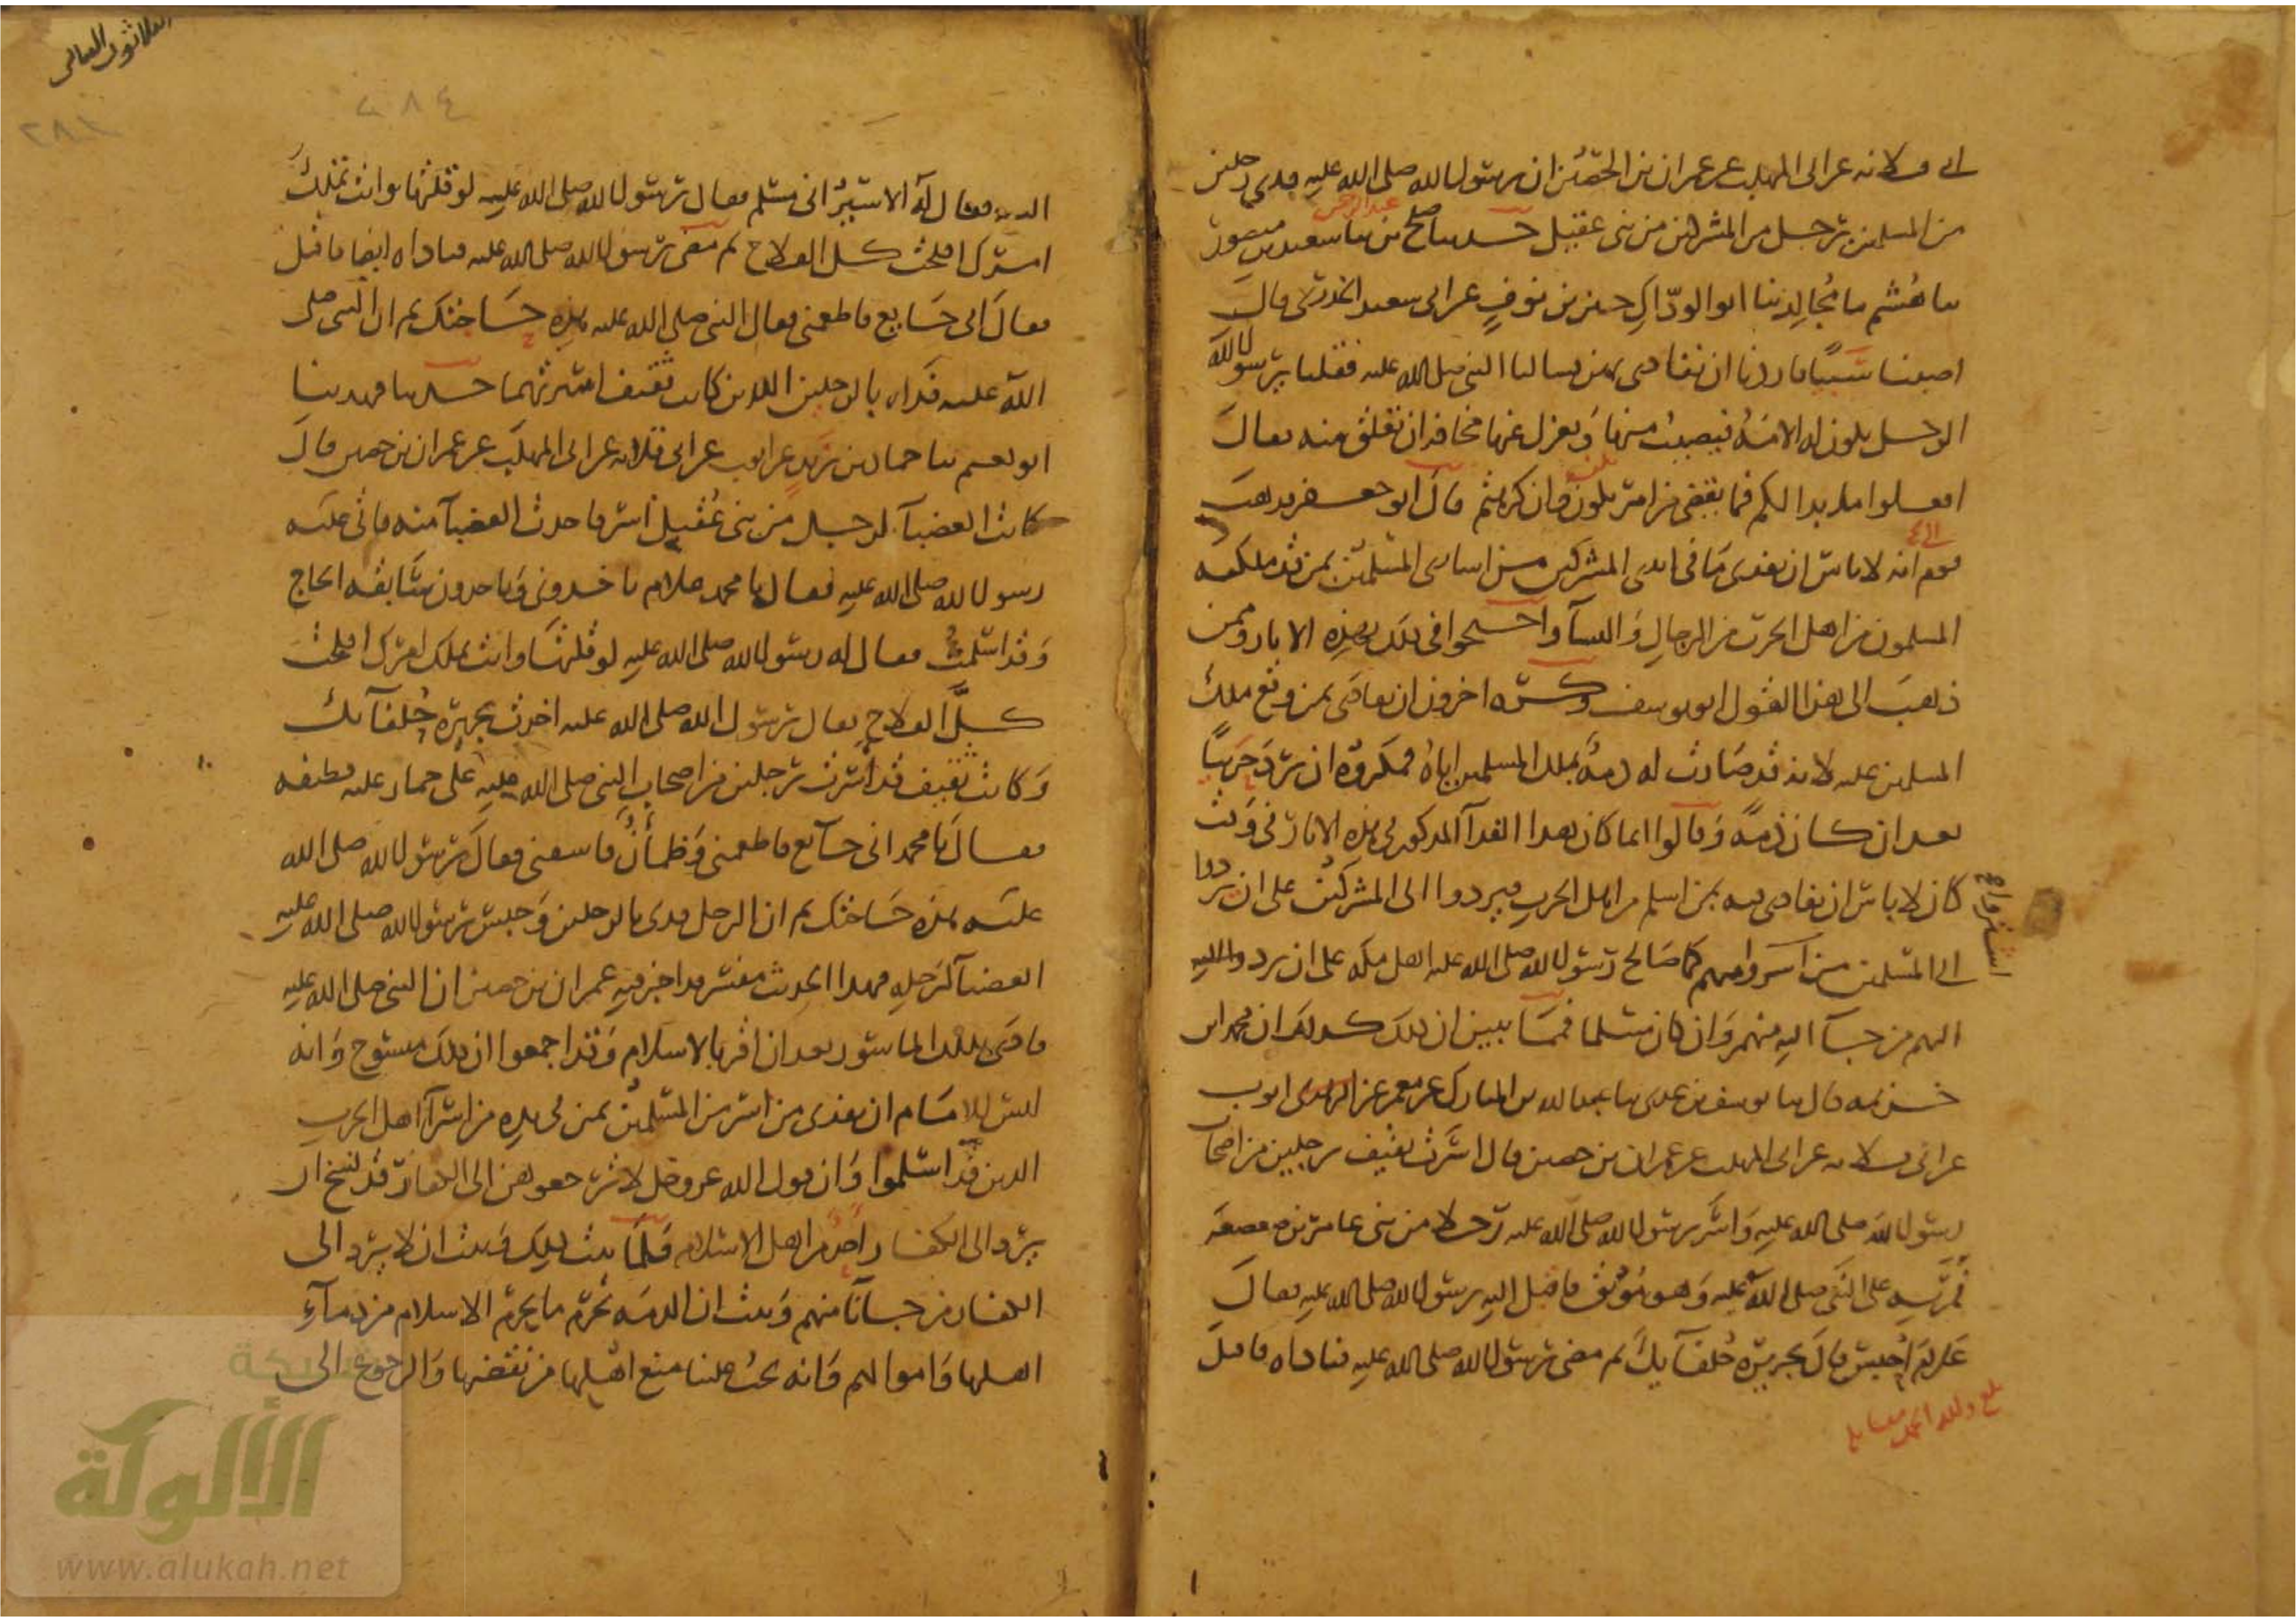 ابى قلابه عن ابى المهلب عن عمران بن الحصين ان رسول الله صلى الله عليه فدى رجلين
من المسلمين برجل من المشركين من بنى عقيل حدثنا صالح بن عبد الرحمن نا سعيد بن منصور
نا هشيم انا مجالد نا ابو الودّاك جبر بن نوفٍ عن ابى سعيد الخدرى قال
اصبنا سَبيًا فاردنا ان نفادى بهن فسالنا النبى صلى الله عليه فقلنا يرسول الله
الرجل يكون له الامَةُ فيصيب منها وَيعزل عنها مخافة ان تعلق منه فقالَ
افعلوا ما بدا لكم فما يقضى من امر يكون وان كرهتم قال ابو جعفر فذهب
قوم الى انه لا باس ان يفدى مَا فى ايدى المشركين من اسارى المسلمين بمن قد ملكه
المسلمون من اهل الحرب من الرجالِ وَالنسآ واحتجوا فى ذلك بهذه الاثار وممن
ذهبَ الى هذا القول ابو يوسف وكره اخرون ان يفادَى بمن وقع ملك
المسلمين عليه لانه قد صَارت له ذمةٌ بملك المسلمين اياهُ فمكروهٌ ان يردّ حربيًا
بعد ان كان ذمةً وَقالوا انما كان هذا الفدآ المذكور فى هذه الاثار فى وَقت
كان لا باس ان يفادى فيه بمن اسلم من اهل الحرب فيردوا الى المشركين على ان يردوا
الى المسلمين من اسروا منهم كما صَالح رسول الله صلى الله عليه اهل مكة على ان يرد اليهم
اليهم من جآ اليه منهم وَان كان مسلما فممَا يبين ان ذلك كذلك ان محمد ابن
خزيمه قال نا يوسف بن عدى نا عبد الله بن المبارك عن معمر عن ايوب
عن ابى قلابه عن ابى المهلب عن عمران بن حصين قال اسَرت ثقيف رجلين من اصحاب
رسول الله صلى الله عليهِ وَاسَر رسول الله صلى الله عليه رجلا من بنى عامر بن صعصعَه
فمُرَّ بِهِ على النبى صلى الله عليه وَهو مُوثَق فاقبل اليهِ رسول الله صلى الله عليه فقالَ
عَلامَ اُحبس قالَ بجريرَة حُلفَآيكَ ثم مضى رسول الله صلى الله عليه فناداه فاقبل
بلغ ولله الحمد مقابله
الثلاثون الثانى
٢٨٤
اليه فقال لهُ الاسيرُ انى مسلم فقال رسول الله صلى الله عليه لو قلتها وانت تملك
امرك افلحت كل الفلاح ثم مضى رسول الله صلى الله عليه فناداه ايضا فاقبل
فقالَ انى جَايع فاطعمنى فقال النبى صلى الله عليه هذِه حَاجتك ثم ان النبى صلى
الله عليه فداه بالرجلين اللذين كانت ثقيف اسرتهما حدثنا فهد نا
ابو نعيم نا حماد بن زيدٍ عن ايوب عن ابى قلابه عن ابى المهلّب عن عمران بن حصين قالَ
كانت العضبآ لرجل من بنى عُقيل اُسر فاخذت العضبآ منه فاتى عليه
رسول الله صلى الله عليه فقال يا محمد علام تاخذونى وَتاخذون سَابقَه الحاج
وَقد اسلمتُ فقال له رسول الله صلى الله عليه لو قلتها وانت تملك امرك افلحت
كلَّ الفلاح فقال رسول الله صلى الله عليه اخذت بجريرَة حُلفآيك
وَكانت ثقيف قد اسَرت رجلين من اصحاب النبى صلى الله عليه على حمار عليه قطيفه
فقال يَا محمد انى جآيع فاطعمنى وَظمأنٌ فاسقنى فقالَ رسول الله صلى الله
عليه هذه حَاجتك ثم ان الرجل فدى بالرجلين وَحبس رسول الله صلى الله عليه
العضبآ لرَحلِه فهذا الحديث مفسّر قد اخبر فيهِ عمران بن حصين ان النبى صلى الله عليه
فادَى بذلك الماسور بعد ان اقر بالاسلام وَقد اجمعوا ان ذلك منسوخ وَانه
ليس للامَام ان يفدى من اُسر من المسلمينُ بمن فى يده من اسرَآ اهل الحرب
الذين قد اسلموا وَان قول الله عز وجل لا ترجعوهن الى الكفار قد نسخ ان
يرد الى الكفار احد من اهل الاسلام فلَمَا ثبت ذلكَ وَثبت ان لا يرد الى
الكفار من جآنَا منهم وَثبت ان الذمَه تحرّم ما يحرّم الاسلام من دمآءِ
اهلها وَاموالهم وَانه يجبُ علينا منع اهْلها من نقضها وَالرجوع الى
شبكة
الألوكة
www.alukah.net